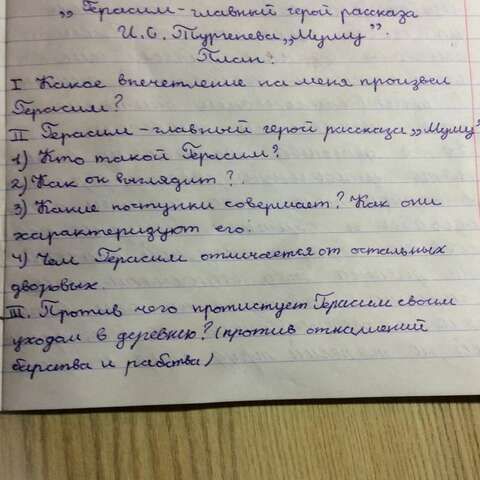 „Герасим-главный герой рассказа
И.С. Тургенева „Муму".
План:
I Какое впечетление на меня произвел
Герасим?
II Герасим-главный герой рассказа „Муму"
1) Кто такой Герасим?
2) Как он выглядит?
3) Какие поступки совершает? Как они
характеризуют его.
4) Чем Герасим отличается от остальных
дворовых.
III. Против чего протистует Герасим своим
уходом в деревню? (против отнашений
барства и рабства)